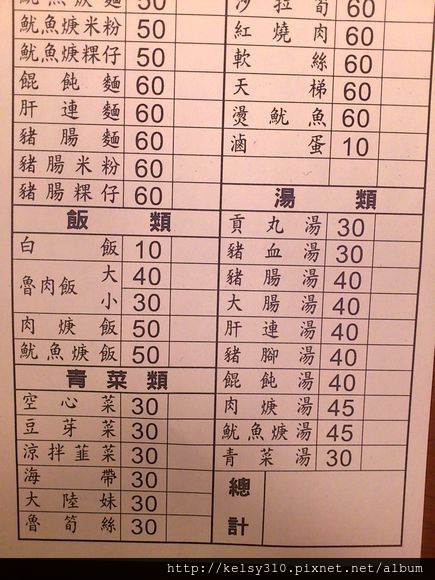 魷魚焿麵 50
魷魚焿米粉 50
魷魚焿粿仔 50
餛飩麵 60
肝連麵 60
豬腸麵 60
豬腸米粉 60
豬腸粿仔 60
飯類
白飯 10
魯肉飯 大 40
小 30
肉焿飯 50
魷魚焿飯 50
青菜類
空心菜 30
豆芽菜 30
涼拌韮菜 30
海帶 30
大陸妹 30
魯筍絲 30
沙拉筍 60
紅燒肉 60
軟絲 60
天梯 60
燙魷魚 60
滷蛋 10
湯類
貢丸湯 30
豬血湯 30
豬腸湯 40
大腸湯 40
肝連湯 40
豬腳湯 40
餛飩湯 40
肉焿湯 45
魷魚焿湯 45
青菜湯 30
總計
http://kelsy310.pixnet.net/album